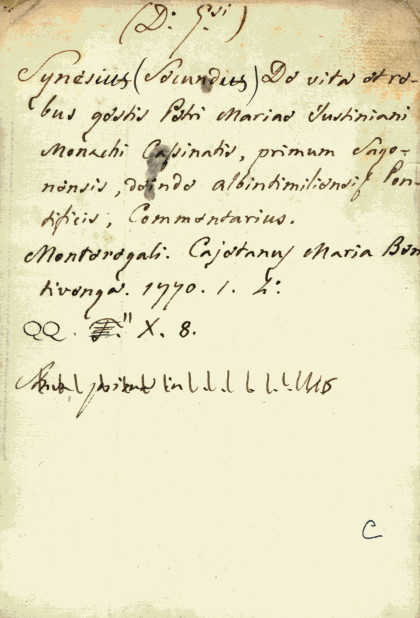 (D.
Synesius (Secundus) De vita et re-
bus gestis Petri Mariae Justiniani
Monachi Cassinatis, primum Sago-
nensis, deinde Albintimiliensis Pon-
tificis, Commentarius.
Monteregali. Cajetanus Maria Bon
tivenga. 1770. 1. 4:
QQ. X. 8.
C